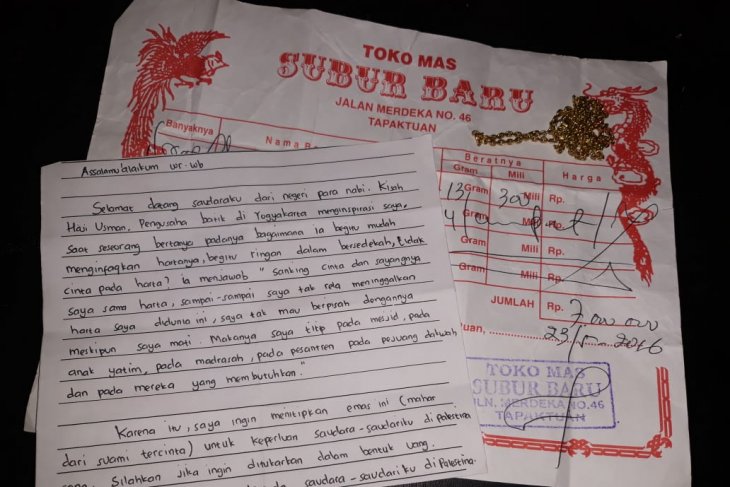 TOKO MAS
SUBUR BARU
JALAN MERDEKA NO. 46
TAPAKTUAN
Banyaknya Nama Beratnya Harga
Gram Mili
13 Gram 300 Mili Rp.
4 Gram Mili Rp.
Gram Mili Rp.
JUMLAH Rp. 7000 000
tuan, 23/5-2016
TOKO MAS
SUBUR BARU
JLN. MERDEKA NO.46
TAPAKTUAN
Assalamu'alaikum wr.wb
Selamat datang saudaraku dari negeri para nabi. Kisah
Haji Usman, Pengusaha batik di Yogyakarta menginspirasi saya,
Saat seseorang bertanya padanya bagaimana ia begitu mudah
menginfaqkan hartanya, begitu ringan dalam bersedekah, tidak
cinta pada harta? Ia menjawab " Sanking cinta dan sayangnya
saya sama harta, sampai-sampai saya tak rela meninggalkan
harta saya didunia ini, saya tak mau berpisah dengannya
meskipun saya mati. Makanya saya titip pada mesjid, pada
anak yatim, pada madrasah, pada pesantren pada pejuang dakwah
dan pada mereka yang membutuhkan."
Karena itu, saya ingin menitipkan emas ini (mahar
dari suami tercinta) untuk keperluan saudara-saudariku di Palestina
sana. Silahkan jika ingin ditukarkan dalam bentuk uang.
saudara-saudariku di Palestina.